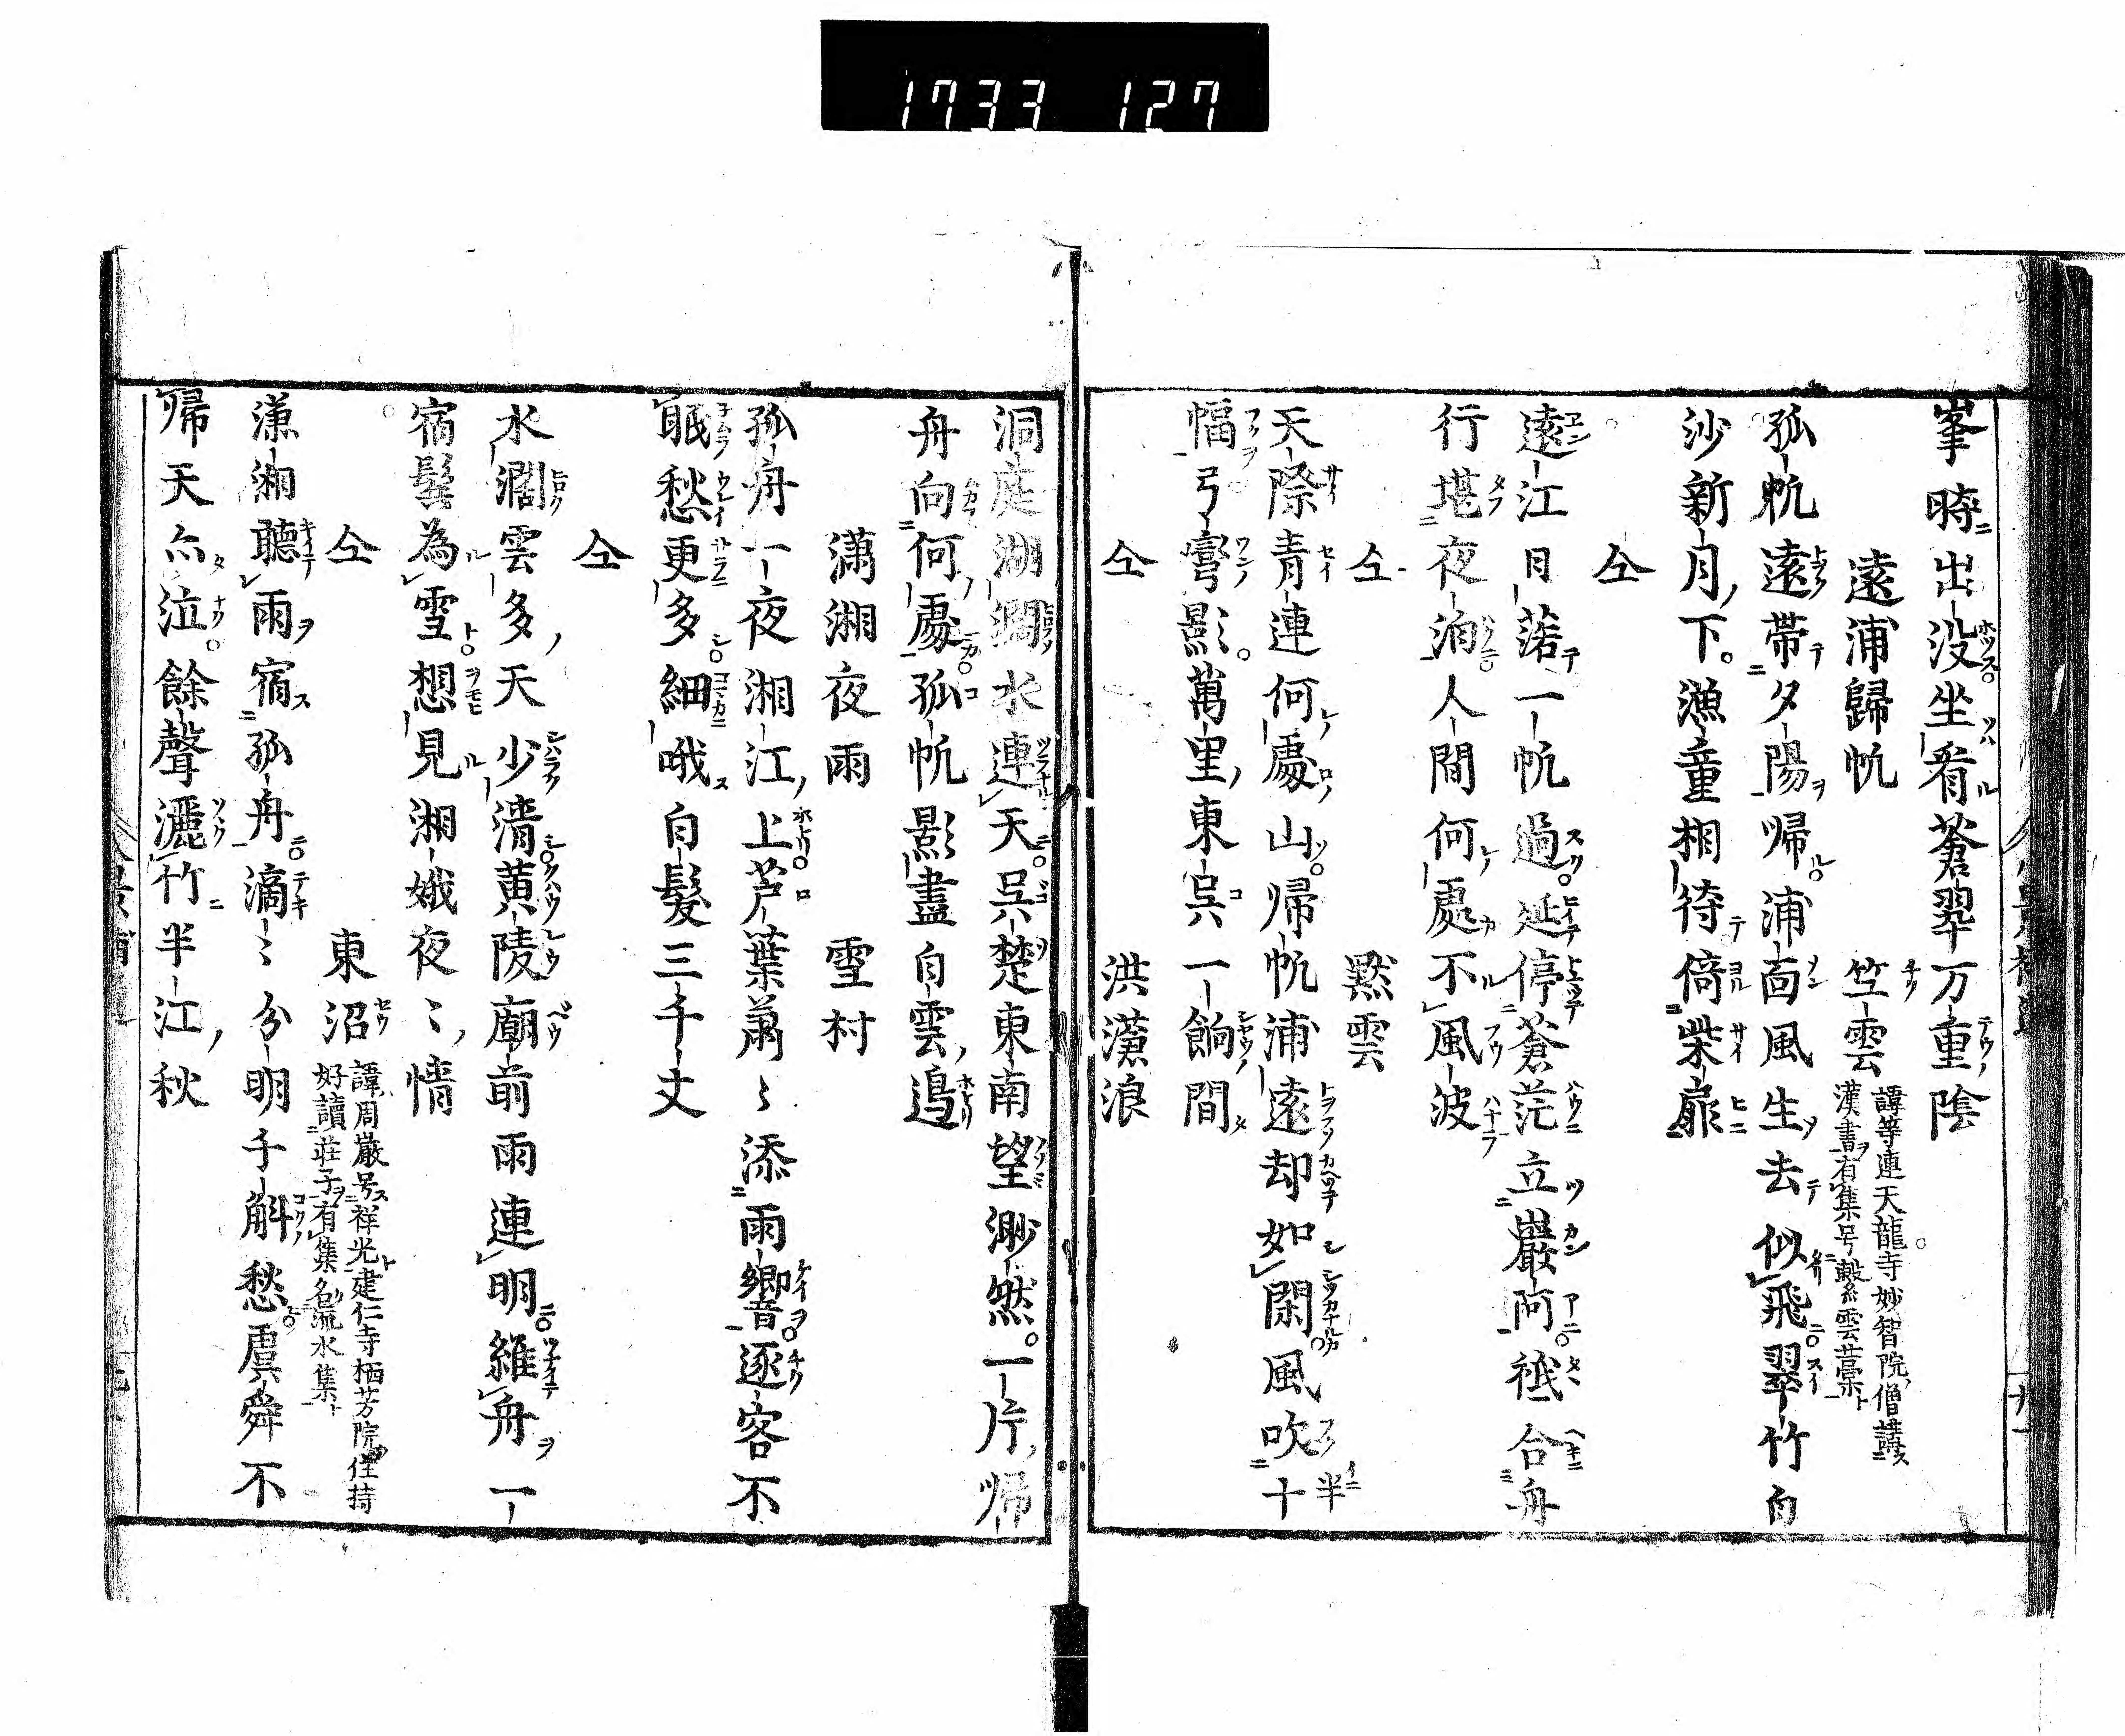 1733 127
峯時出没坐看蒼翠万重陰
遠浦歸帆 竺雲 諱等連天龍寺妙智院僧講
漢書有集号繫雲藁
孤帆遠帯夕陽帰浦面風生去似飛翠竹白
沙新月下漁童相待倚柴扉
仝
遠江日落一帆過延停蒼茫立巖阿袛合舟
行堪夜泊人間何處不風波
仝 黙雲
天際青連何處山帰帆浦遠却如閑風吹十
半
幅弓彎影萬里東呉一餉間
仝 洪蕩浪
洞庭湖濶水連天呉楚東南望渺然一片帰
舟向何處孤帆影盡白雲邉
瀟湘夜雨 雪村
孤舟一夜湘江上芦葉蕭〻添雨響逐客不
眠愁更多細哦白髮三千丈
仝
水濶雲多天少清黄陵廟前雨連明維舟一
宿鬂為雪想見湘娥夜〻情
仝 東沼 諱周巖号祥光建仁寺栖芳院住持
好讀荘子有集名流水集
瀟湘聽雨宿孤舟滴〻分明千斛愁虞舜不
帰天亦泣餘聲灑竹半江秋